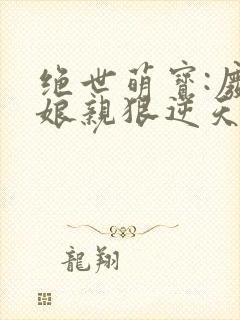 绝世萌寶:廢
娘親狠逆天
龍翔